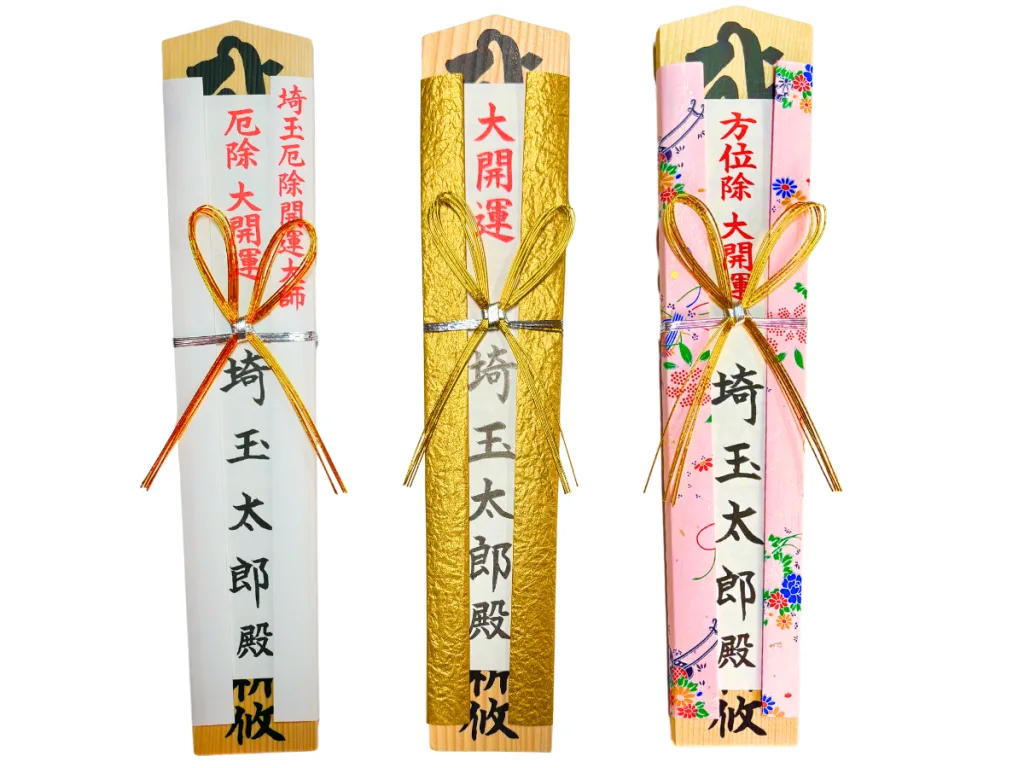 埼玉厄除開運大師
厄除 大開運
埼玉太郎殿
攸
大開運
埼玉太郎殿
攸
方位除 大開運
埼玉太郎殿
攸